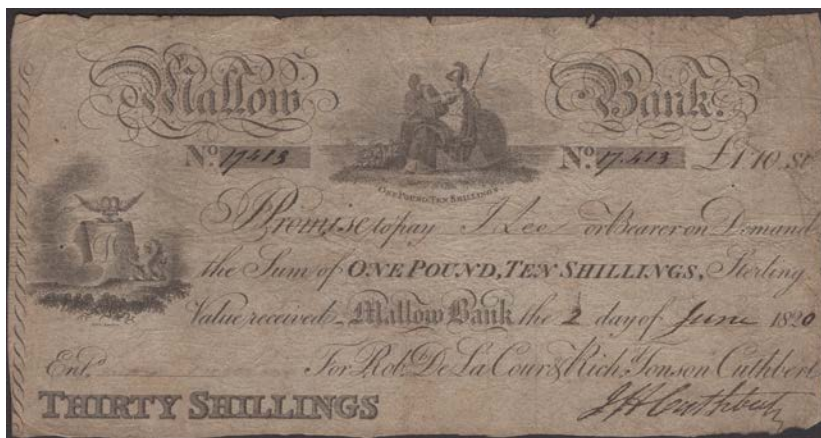 Mallow Bank.
No. 17413 No. 17.413 £1"10. St
ONE POUND, TEN SHILLINGS
Promise to pay J Lee or Bearer on Demand
the Sum of ONE POUND, TEN SHILLINGS, Sterling
Value received Mallow Bank the 2 day of June 1820
Entd. For Robt. De La Cour & Richd. Tonson Cuthbert
THIRTY SHILLINGS